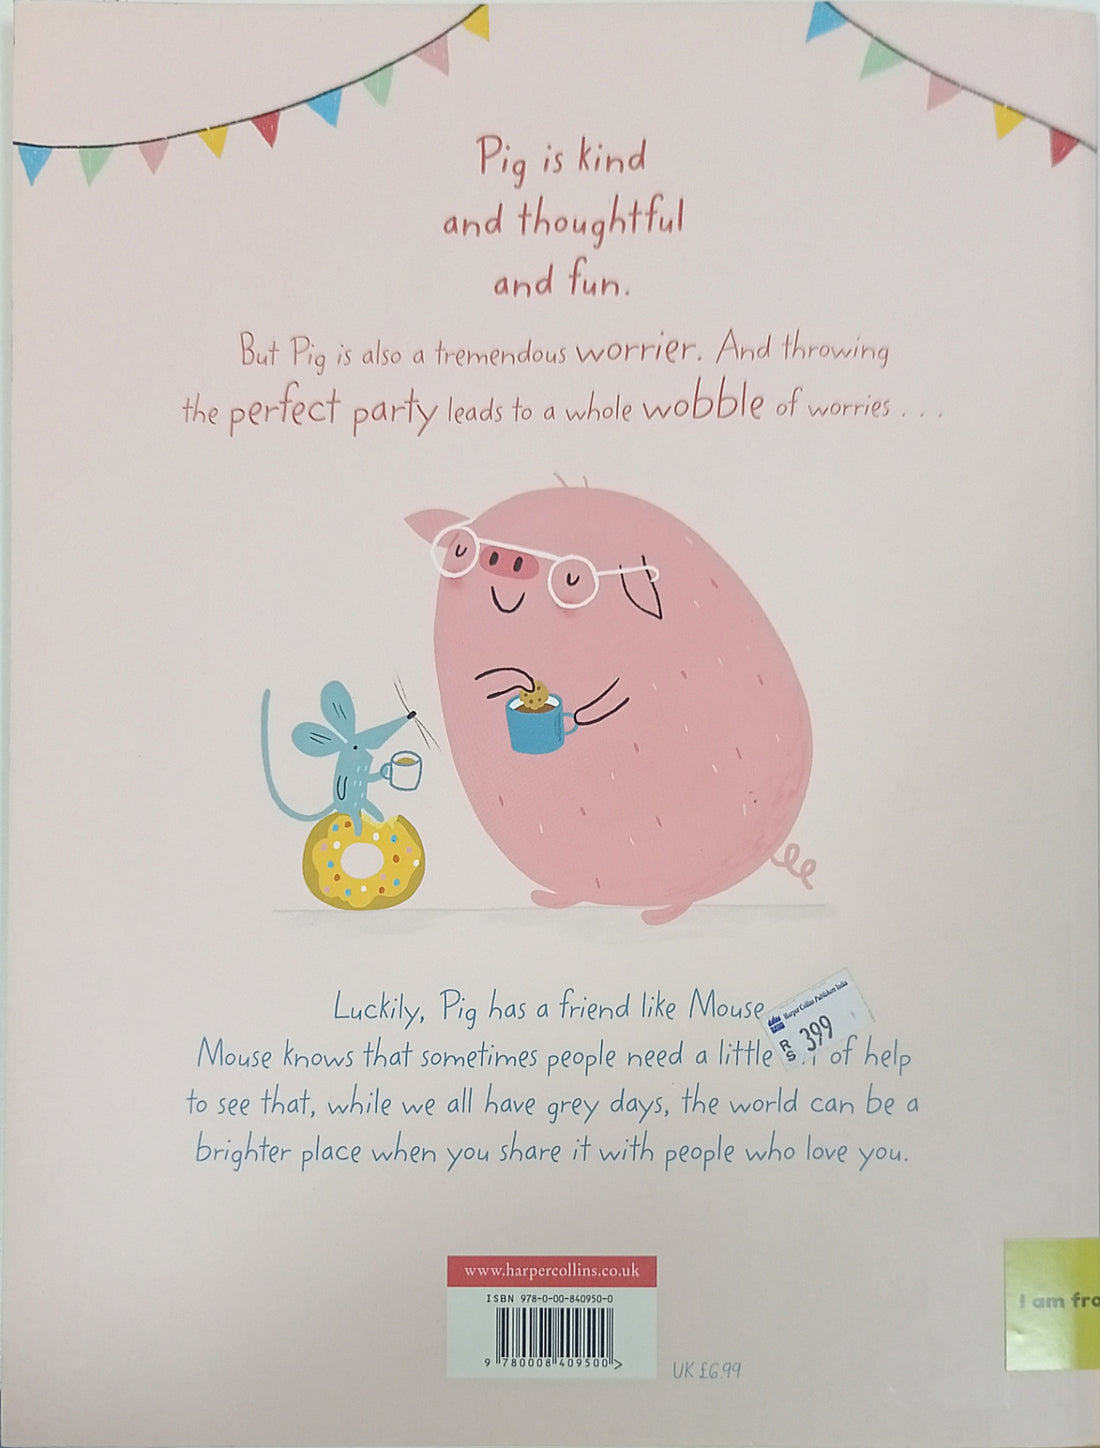 Pig is kind
and thoughtful
and fun.
But Pig is also a tremendous worrier. And throwing
the perfect party leads to a whole wobble of worries . . .
Luckily, Pig has a friend like Mouse
Harper Collins Publishers India
RS 399
Mouse knows that sometimes people need a little of help
to see that, while we all have grey days, the world can be a
brighter place when you share it with people who love you.
www.harpercollins.co.uk
ISBN 978-0-00-840950-0
9 780008 409500 >
UK £6.99
I am fro